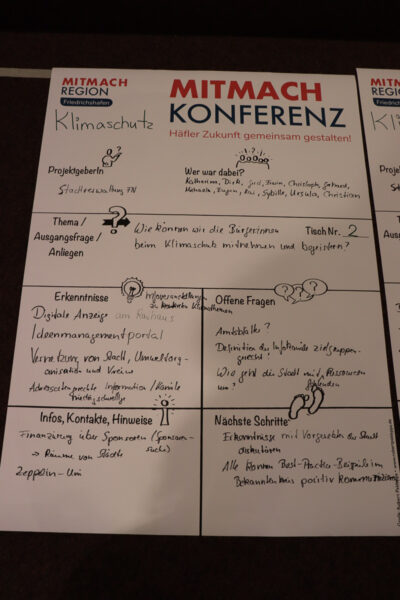 MITMACH
REGION
Friedrichshafen
MITMACH
KONFERENZ
Häfler Zukunft gemeinsam gestalten!
Klimaschutz
ProjektgeberIn
Stadtverwaltung FN
Wer war dabei?
Katharina, Dirk, Jurij, Erwin, Christoph, Gerhard,
Michaela, Eugen, Kai, Sybille, Ursula, Christian
Thema /
Ausgangsfrage /
Anliegen
Wie können wir die Bürgerinnen
beim Klimaschutz mitnehmen und begeistern?
Tisch Nr. 2
Erkenntnisse
Infoveranstaltungen
zu Themen
Digitale Anzeige am Rathaus
Ideenmanagementportal
Vernetzung von Stadt, Umweltorg-
anisation und Vereine
Adressatengerechte Information / Kanäle
niedrigschwellig
Offene Fragen
Amtsblatt?
Definition der Infokanäle zielgruppen-
gerecht?
Wie geht die Stadt mit Ressourcen
um?
Infos, Kontakte, Hinweise
Finanzierung über Sponsoren (Sponsoren-
suche)
→ Räume von Städte
Zeppelin-Uni
Nächste Schritte
Erkenntnisse mit Vorgesetzten der Stadt
diskutieren
Alle können Best-Practice-Beispiele im
Bekanntenkreis positiv kommunizieren
MITM
REGION
Friedrichshafen
Kli